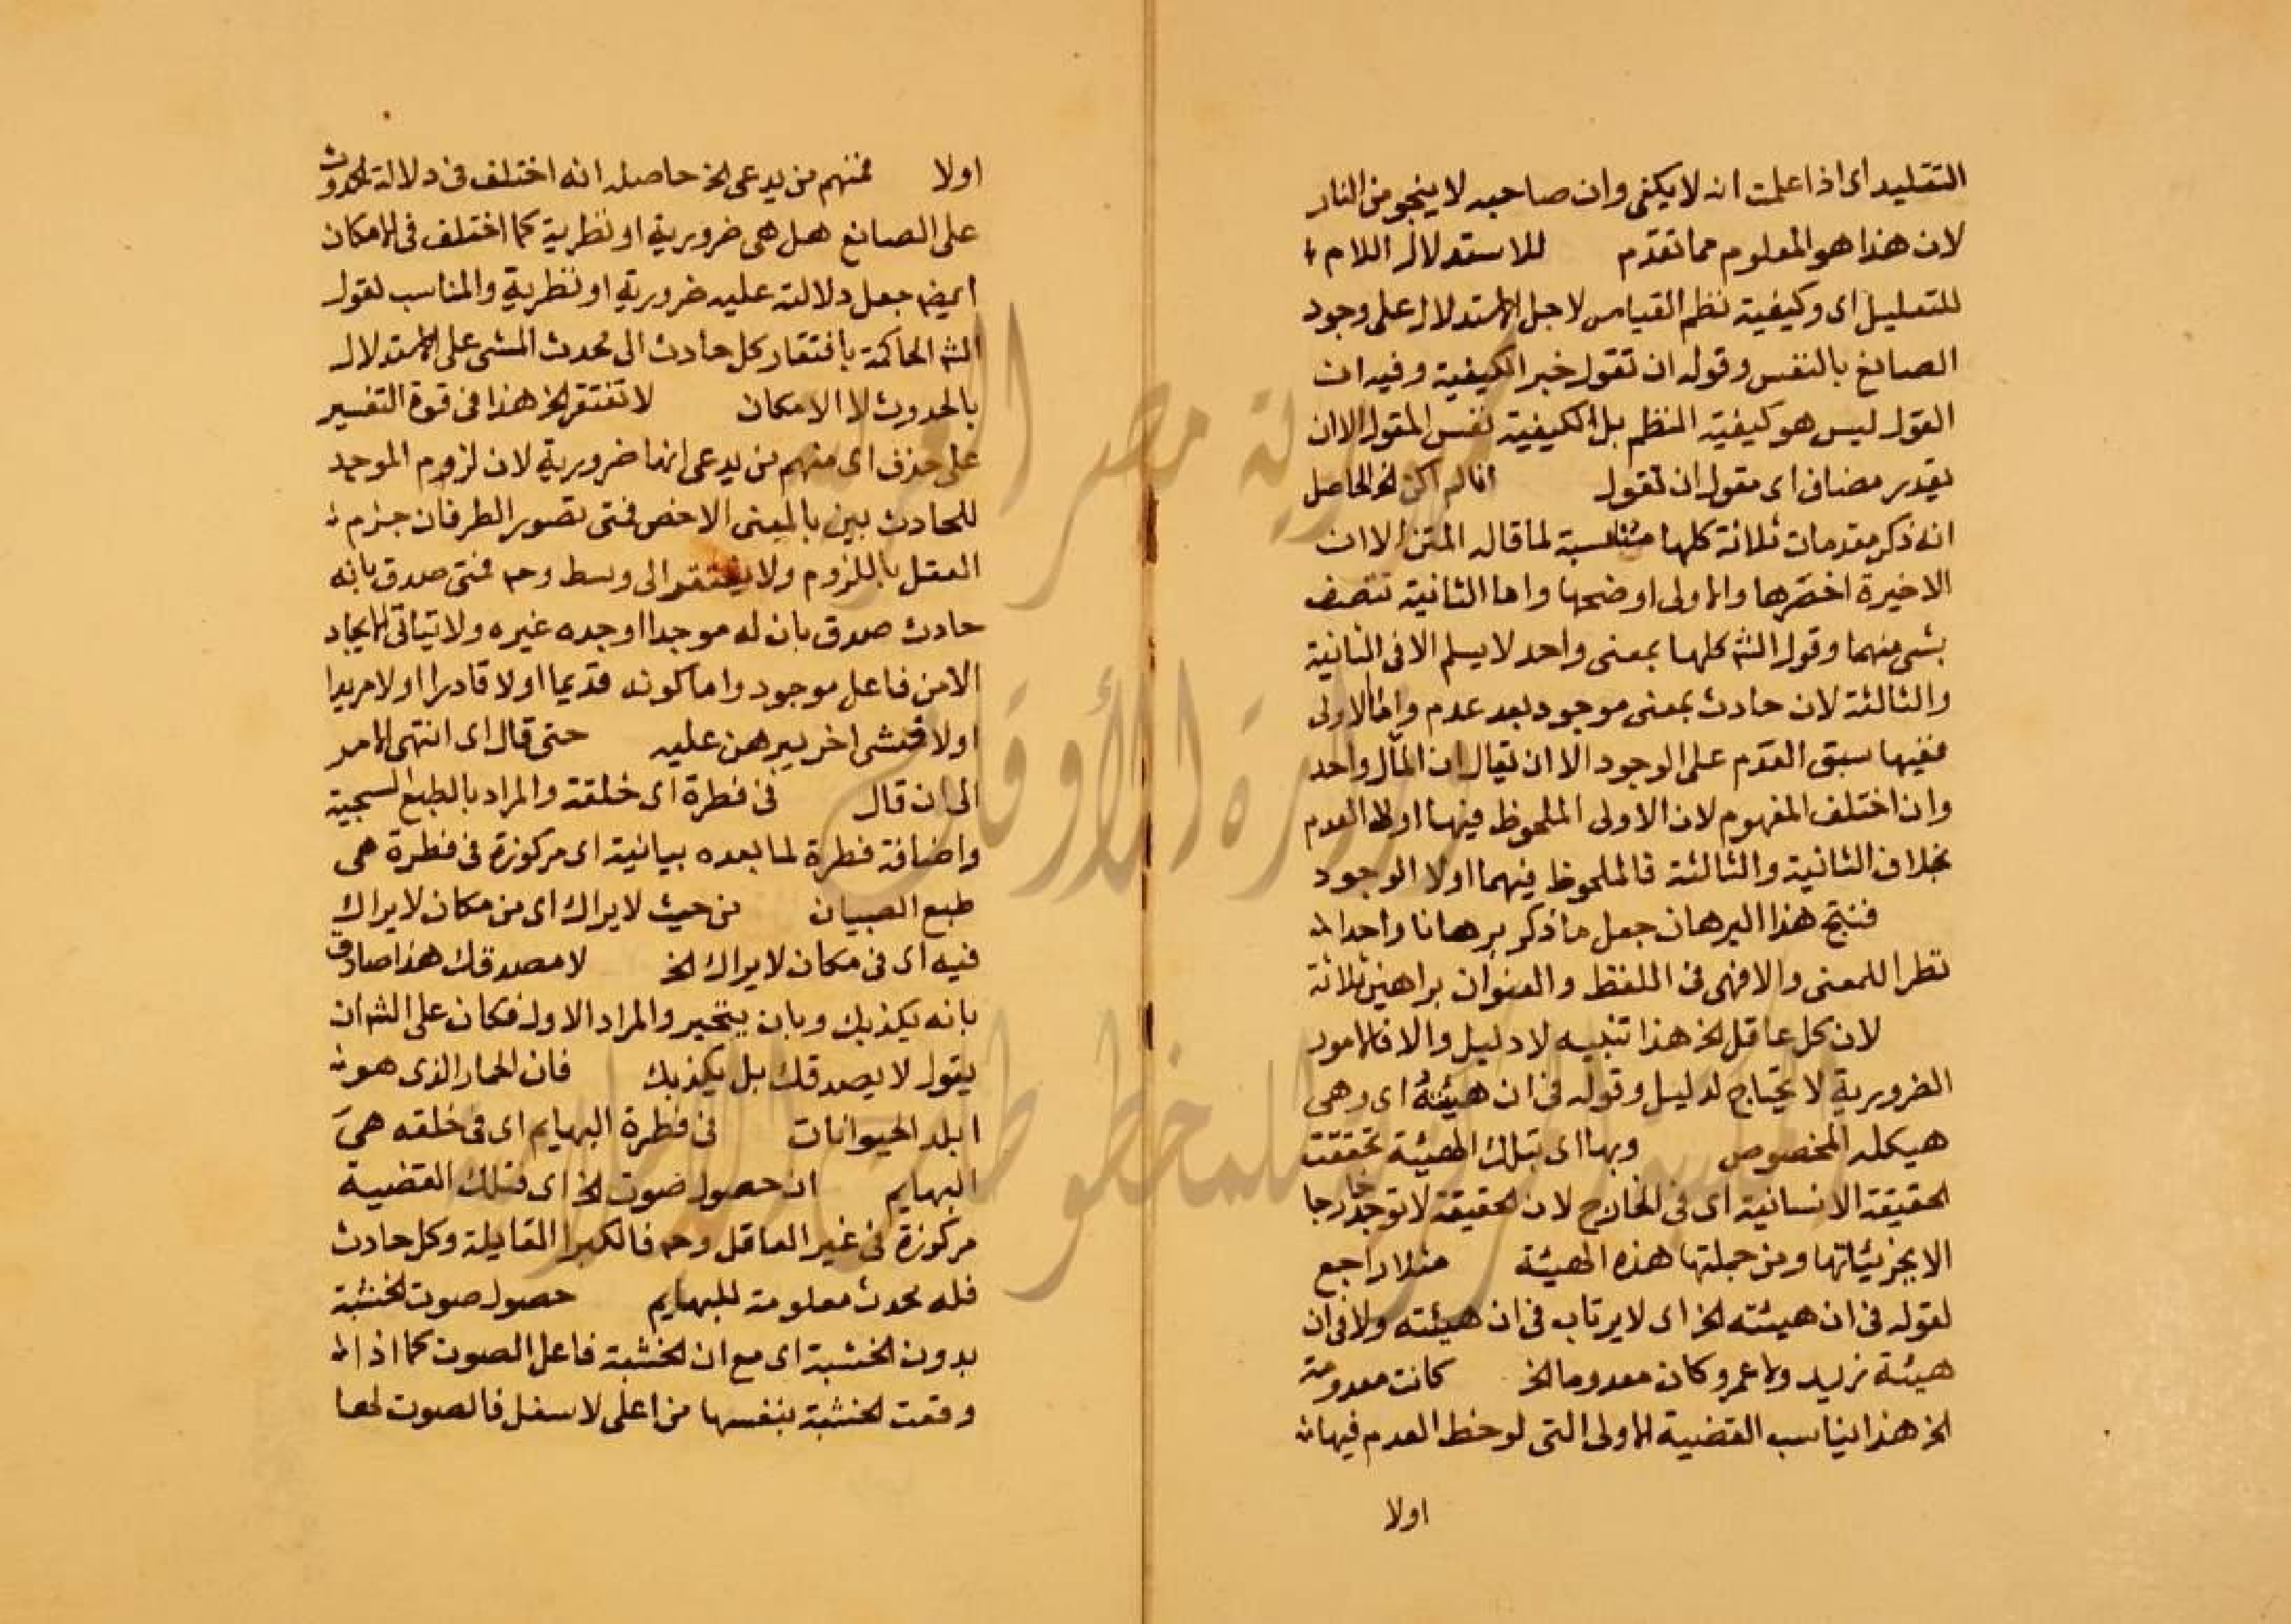 التقليد اى اذا علمت انه لا يكفى وان صاحبه لا ينجو من النار
لان هذا هو المعلوم مما تقدم للاستدلال اللام
للتعليل اى وكيفية نظم القياس لاجل الاستدلال على وجود
الصانع بالنفس وقوله ان تقول خبر الكيفية وفيه ان
القول ليس هو كيفية النظم بل الكيفية نفس المقول الا ان
يقدر مضاف اى مقول ان تقول انا لم اكن الخ الحاصل
انه ذكر مقدمات ثلاثة كلها مناسبة لما قاله المتن الا ان
الاخيرة اخصرها والاولى اوضحها واما الثانية تتصف
بشى منهما وقول الشه كلها بمعنى واحد لا يسلم الا فى الثانية
والثالثة لان حادث بمعنى موجود بعد عدم واما الاولى
ففيها سبق العدم على الوجود الا ان يقال ان المآل واحد
وان اختلف المفهوم لان الاولى الملحوظ فيها اولا العدم
بخلاف الثانية والثالثة فالملحوظ فيهما اولا الوجود
فنتج هذا البرهان جعل ما ذكر برهانا واحدا
نظرا للمعنى والا فهى فى اللفظ والعنوان براهين ثلاثة
لان كل عاقل الخ هذا تنبيه لا دليل والا فالامور
الضرورية لا تحتاج لدليل وقوله فى ان هيئته اى وهى
هيكله المخصوص وبها اى بتلك الهيئة تحققت
الحقيقة الانسانية اى فى الخارج لان الحقيقة لا توجد خارجا
الا بجزئياتها ومن جملتها هذه الهيئة مثلا راجع
لقوله فى ان هيئته الخ اى لا يرتاب فى ان هيئته ولا فى ان
هيئة زيد ولا عمرو كان معدوما الخ كانت معدومة
الخ هذا يناسب القضية الاولى التى لوحظ العدم فيها
اولا
اولا فمنهم من يدعى الخ حاصله انه اختلف فى دلالة الحدوث
على الصانع هل هى ضرورية او نظرية كما اختلف فى الامكان
ايضا جعل دلالته عليه ضرورية او نظرية والمناسب لقول
الشه الحاكمة بافتقار كل حادث الى محدث المشى على الاستدلال
بالحدوث لا الامكان لا تفتقر الخ هذا فى قوة التفسير
على حذف اى منهم من يدعى انها ضرورية لان لزوم الموجد
للحادث بين بالمعنى الاخص فمتى تصور الطرفان جزم
العقل باللزوم ولا يفتقر الى وسط وحـ فمتى صدق بانه
حادث صدق بان له موجدا اوجده غيره ولا يتاتى الايجاد
الا من فاعل موجود واما كونه قديما اولا قادرا اولا مريدا
اولا فشى اخر يبرهن عليه حتى قال اى انتهى الامر
الى ان قال فى فطرة اى خلقة والمراد بالطبع السجية
واضافة فطرة لما بعده بيانية اى مركوزة فى فطرة هى
طبع الصبيان من حيث لا يراك اى من مكان لا يراك
فيه اى فى مكان لا يراك الخ لا مصدقك هذا صادق
بانه يكذبك وبان يتحير والمراد الاول فكان على الشه ان
يقول لا يصدقك بل يكذبك فان الحمار الذى هو
ابلد الحيوانات فى فطرة البهايم اى فى خلقه هى
البهايم ان حصول صوت الخ اى فتلك القضية
مركوزة فى غير العاقل وحـ فالكبرا القايلة وكل حادث
فله محدث معلومة للبهايم حصول صوت الخشبة
بدون الخشبة اى مع ان الخشبة فاعل الصوت كما اذا
وقعت الخشبة بنفسها من اعلى لاسفل فالصوت لها